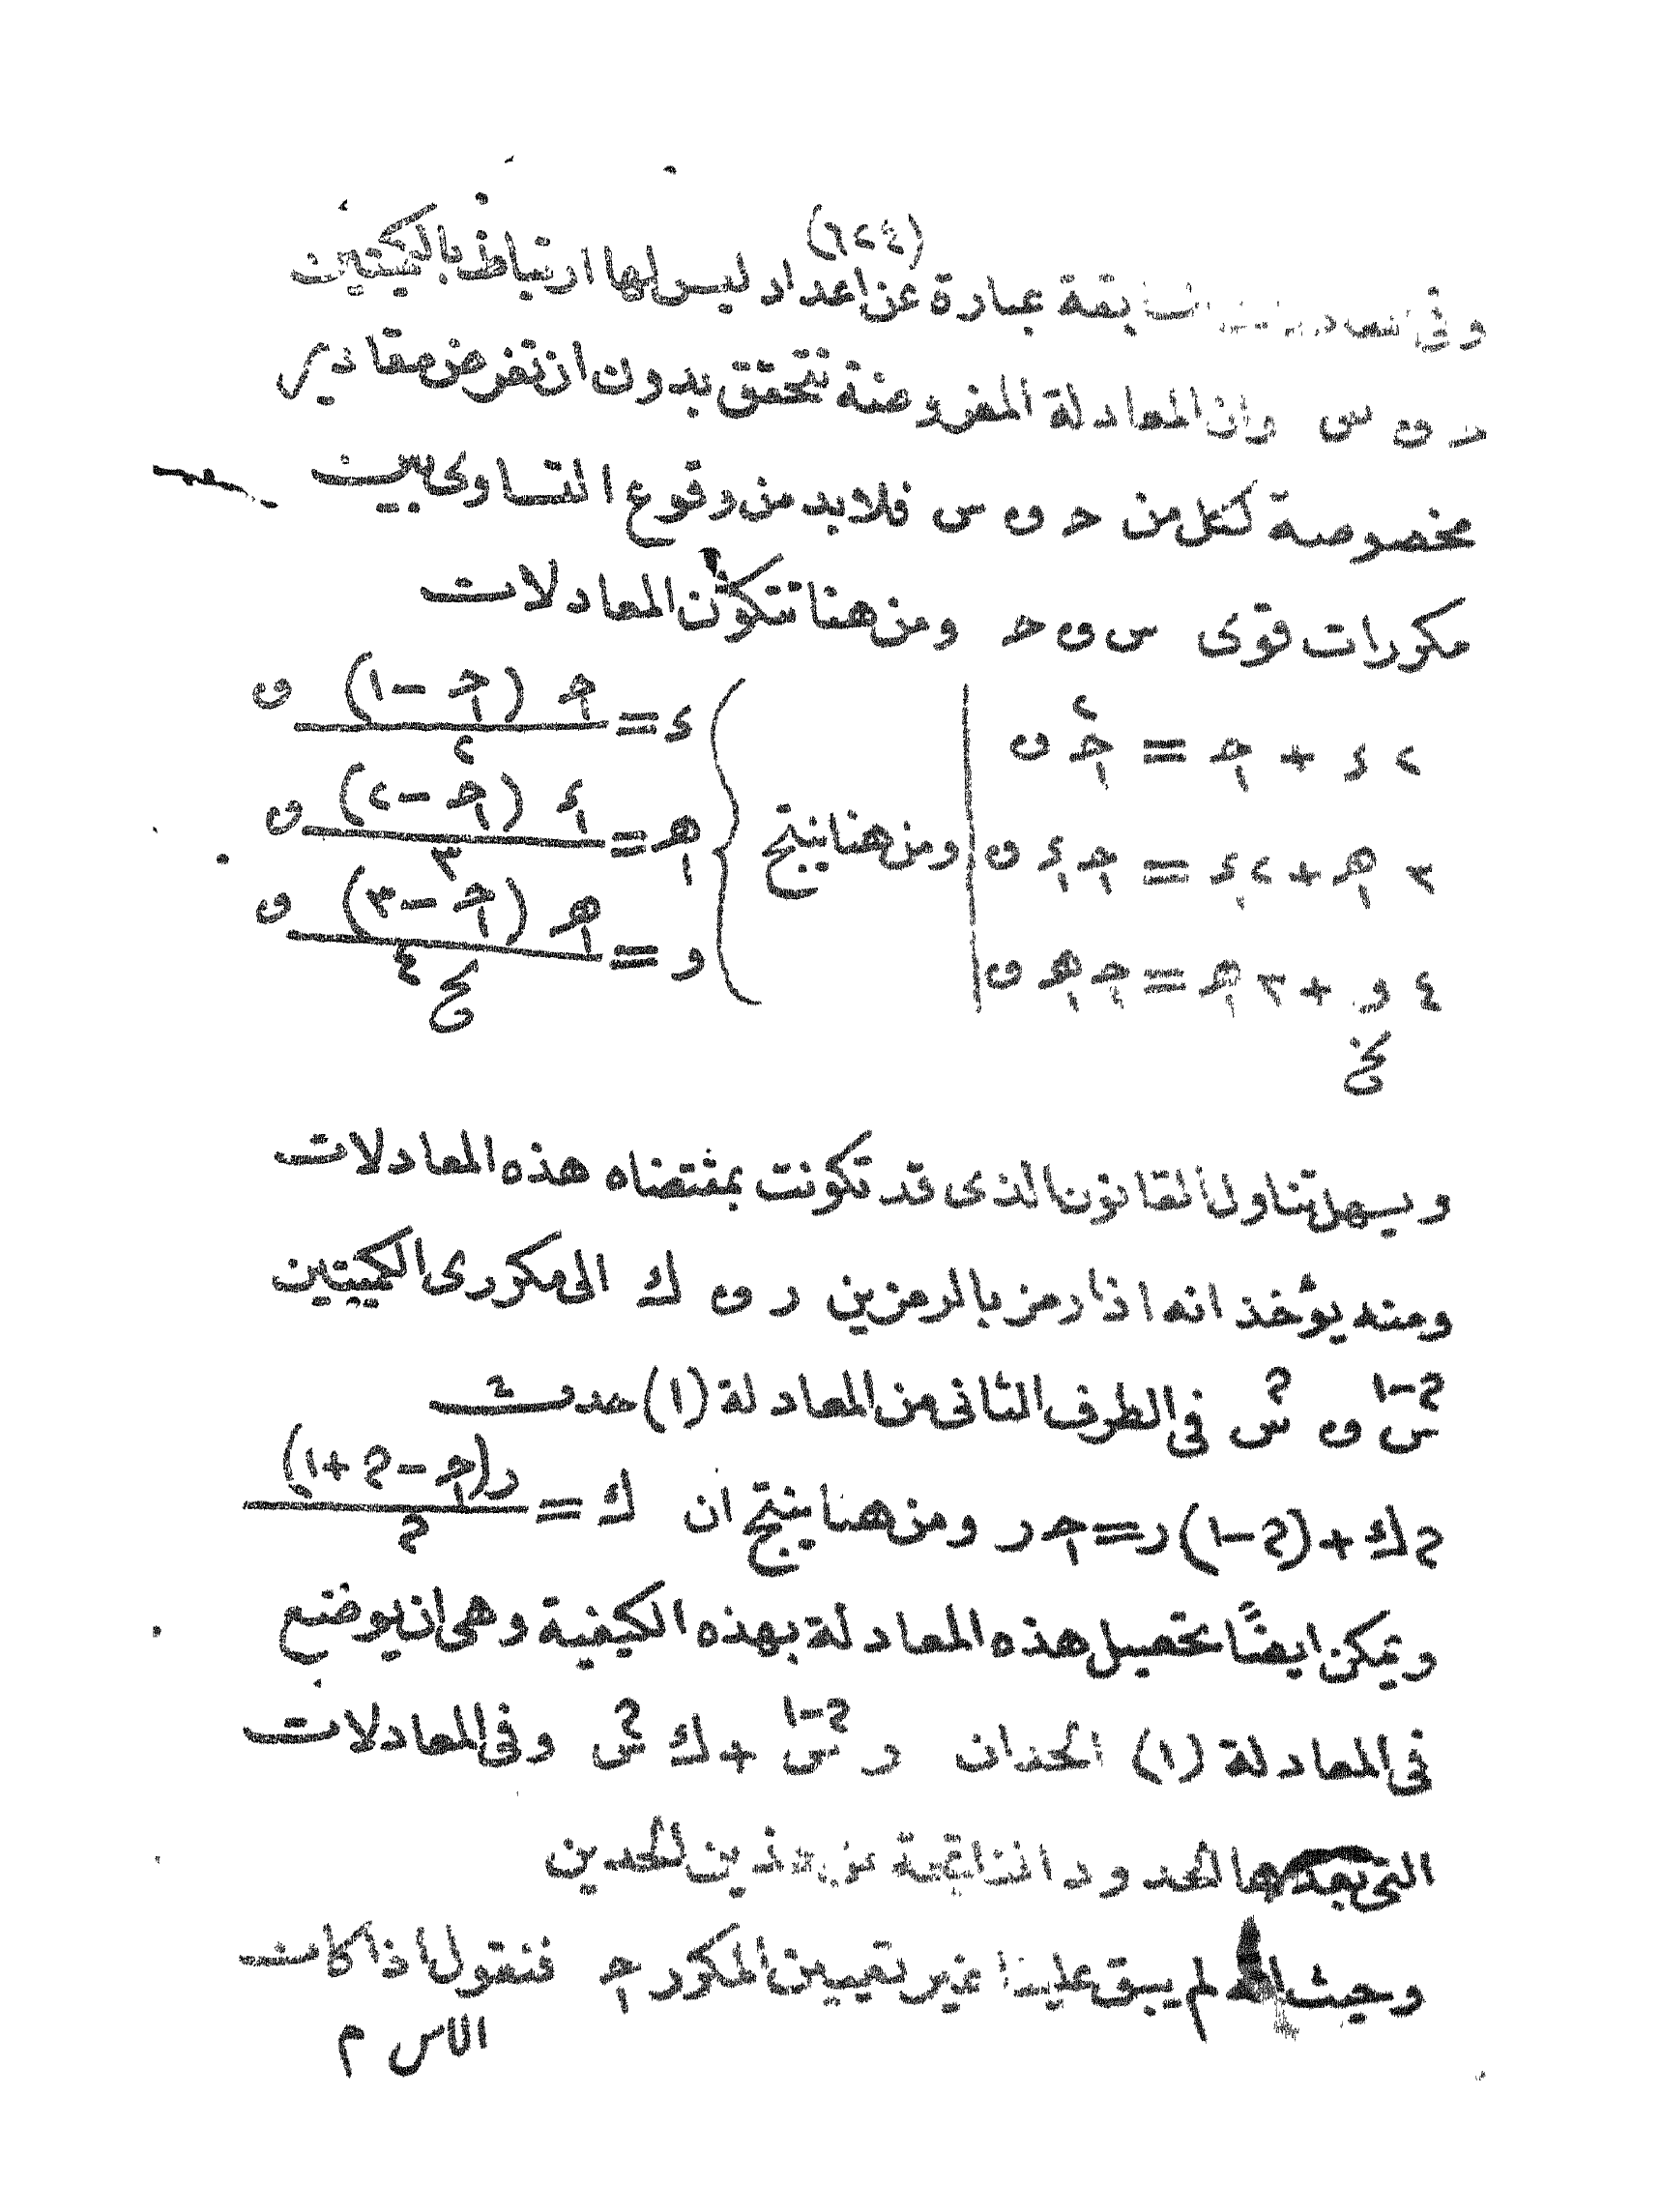 (٦٢٤)
وفى بقة عبارة عن اعداد ليس لها ارتباط بالكميتين
حـ و س وان المعادلة المفروضة تتحقق بدون ان تفرض مقادير
مخصوصة لكل من حـ و س فلابد من وقوع التساوى بين
مكررات قوى س و حـ ومن هنا تتكون المعادلات
٢ ء + حـ = حـ٢ و | ومن هنا ينتج { ء = حـ (حـ - ١) / ٢ و
٣ هـ + ٢ء = حـ ء و | هـ = ء (حـ - ٢) / ٣ و
٤ و + ٣ هـ = حـ هـ و | و = هـ (حـ - ٣) / ٤ و
الخ الخ
ويسهل تناول القانون الذى قد تكونت بمقتضاه هذه المعادلات
ومنه يؤخذ انه اذا رمز بالرمزين ر و ك الى مكررى الكميتين
س^(م-١) و س^م فى الطرف الثانى من المعادلة (١) حدث
م ك + (م-١) ر = حـ ر ومن هنا ينتج ان ك = ر(حـ - م + ١) / م
ويمكن ايضًا تحصيل هذه المعادلة بهذه الكيفية وهى ان يوضع
فى المعادلة (١) الحدان ر س^(م-١) + ك س^م وفى المعادلات
التى بعدها الحدود الناتجة من هذين الحدين
وحيث انه لم يبق علينا غير تعيين المكرر حـ فنقول اذا كانت
الاس م